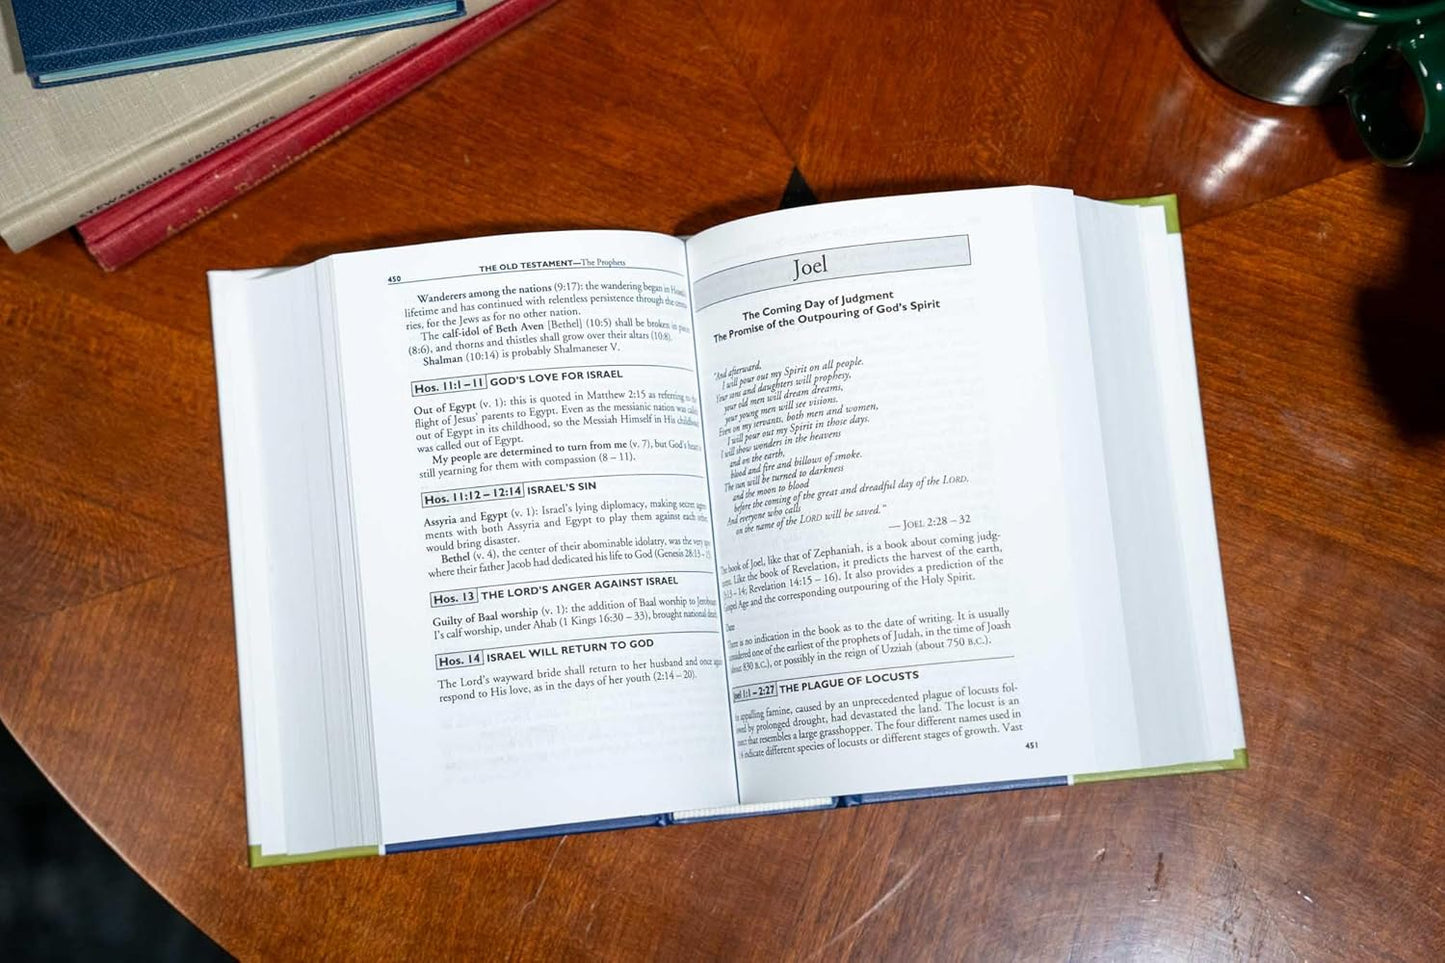 STEWARDSHIP SERMONETTES
450
THE OLD TESTAMENT—The Prophets
Wanderers among the nations (9:17): the wandering began in
lifetime and has continued with relentless persistence through the
ries, for the Jews as for no other nation.
The calf-idol of Beth Aven [Bethel] (10:5) shall be broken in
(8:6), and thorns and thistles shall grow over their altars (10:8).
Shalman (10:14) is probably Shalmaneser V.
Hos. 11:1 – 11 GOD'S LOVE FOR ISRAEL
Out of Egypt (v. 1): this is quoted in Matthew 2:15 as referring to
flight of Jesus' parents to Egypt. Even as the messianic nation was
out of Egypt in its childhood, so the Messiah Himself in His childhood
was called out of Egypt.
My people are determined to turn from me (v. 7), but God's heart
still yearning for them with compassion (8 – 11).
Hos. 11:12 – 12:14 ISRAEL'S SIN
Assyria and Egypt (v. 1): Israel's lying diplomacy, making secret
ments with both Assyria and Egypt to play them against each other,
would bring disaster.
Bethel (v. 4), the center of their abominable idolatry, was the very
where their father Jacob had dedicated his life to God (Genesis 28:13 – 15
Hos. 13 THE LORD'S ANGER AGAINST ISRAEL
Guilty of Baal worship (v. 1): the addition of Baal worship to Jeroboam
I's calf worship, under Ahab (1 Kings 16:30 – 33), brought national
Hos. 14 ISRAEL WILL RETURN TO GOD
The Lord's wayward bride shall return to her husband and once again
respond to His love, as in the days of her youth (2:14 – 20).
Joel
The Coming Day of Judgment
The Promise of the Outpouring of God's Spirit
"And afterward,
I will pour out my Spirit on all people.
Your sons and daughters will prophesy,
your old men will dream dreams,
your young men will see visions.
Even on my servants, both men and women,
I will pour out my Spirit in those days.
I will show wonders in the heavens
and on the earth,
blood and fire and billows of smoke.
The sun will be turned to darkness
and the moon to blood
before the coming of the great and dreadful day of the LORD.
And everyone who calls
on the name of the LORD will be saved."
— JOEL 2:28 – 32
The book of Joel, like that of Zephaniah, is a book about coming judg-
ment. Like the book of Revelation, it predicts the harvest of the earth,
13 – 14; Revelation 14:15 – 16). It also provides a prediction of the
Gospel Age and the corresponding outpouring of the Holy Spirit.
Date
There is no indication in the book as to the date of writing. It is usually
considered one of the earliest of the prophets of Judah, in the time of Joash
(about 830 B.C.), or possibly in the reign of Uzziah (about 750 B.C.).
Joel 1:1 – 2:27 THE PLAGUE OF LOCUSTS
appalling famine, caused by an unprecedented plague of locusts fol-
lowed by prolonged drought, had devastated the land. The locust is an
insect that resembles a large grasshopper. The four different names used in
indicate different species of locusts or different stages of growth. Vast
451